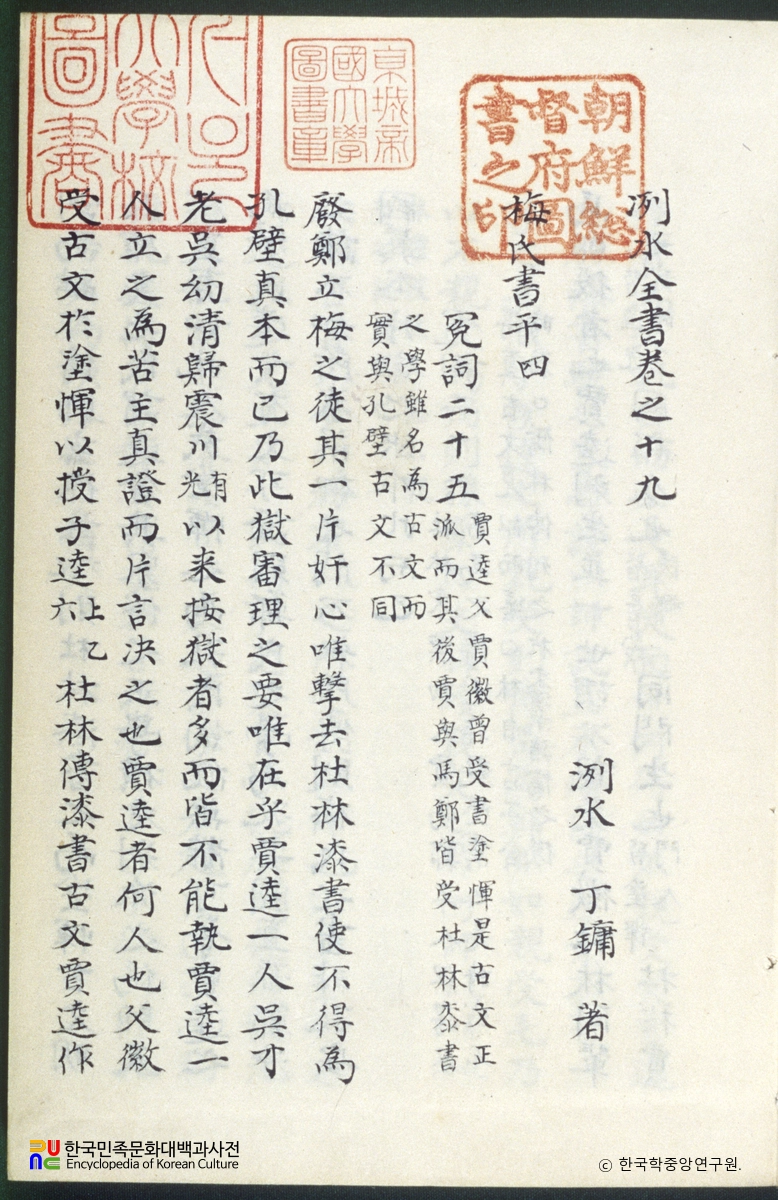 洌水全書卷之十九
洌水 丁鏞 著
梅氏書平四
冤詞二十五
賈逵父賈徽曾受書塗惲是古文正
派而其後賈與馬鄭皆受杜林桼書
之學雖名為古文而
實與孔壁古文不同
廢鄭立梅之徒其一片奸心唯擊去杜林漆書使不得為
孔壁真本而已乃此獄審理之要唯在乎賈逵一人吳才
老吳幼清歸震川有光以来按獄者多而皆不能執賈逵一
人立之為苦主真證而片言决之也賈逵者何人也父徽
受古文於塗惲以授子逵上乙六杜林傳漆書古文賈逵作
朝鮮總
督府圖
書之印
京城帝
國大學
圖書章
大學校
圖書
한국민족문화대백과사전
Encyclopedia of Korean Culture
ⓒ 한국학중앙연구원.